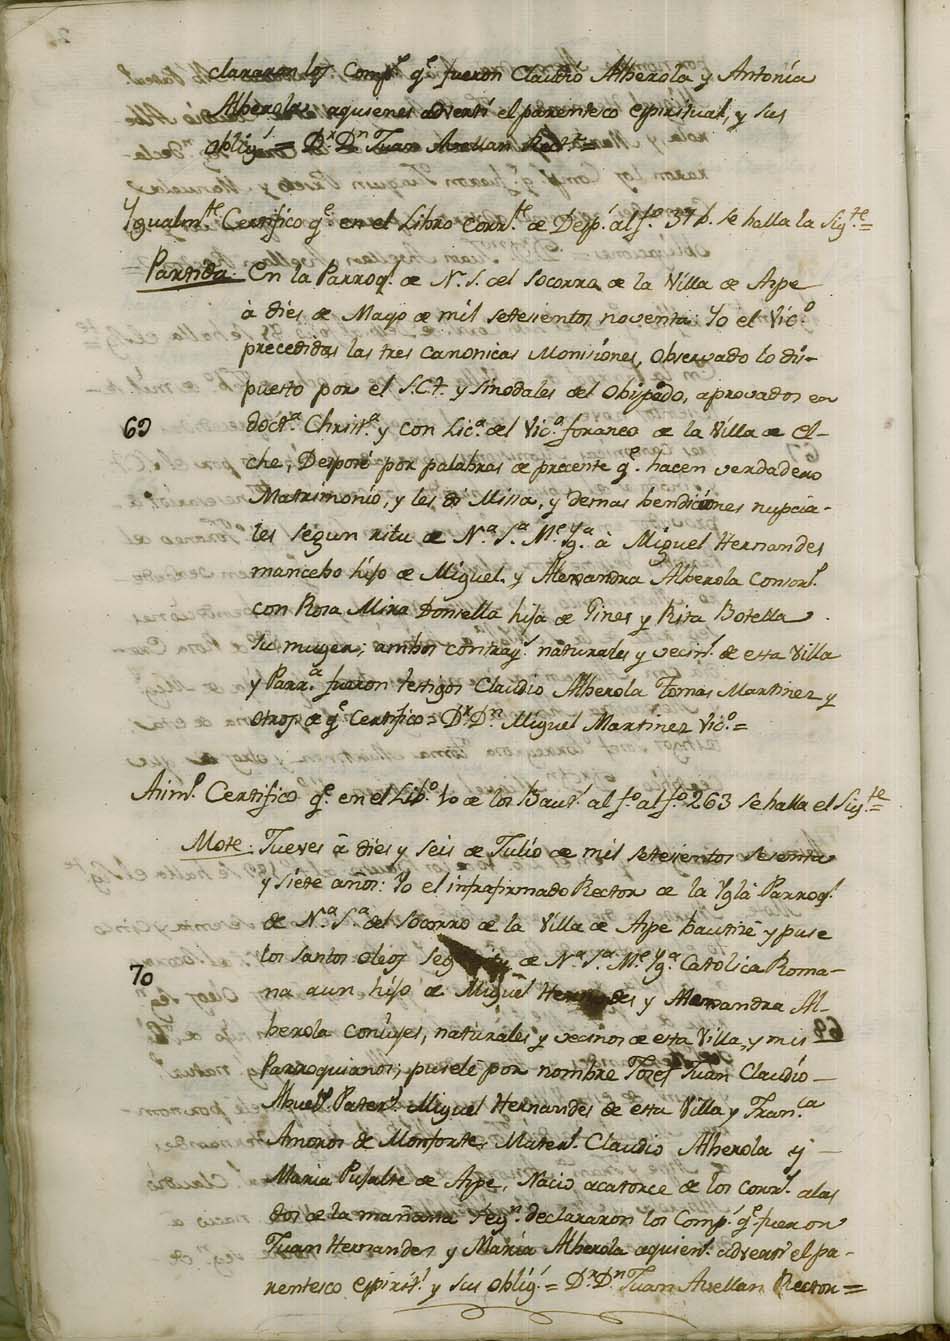 clararon los Comp.s q.e fueron Claudio Alberola y Antonia
Alberola, aquienes adverti el parentesco espiritual, y sus
oblig.s = D.r D.n Juan Avellan Rect.r =
Ygualm.te Certifico q.e en el Libro corr.te de Desp.s al f.o 37 b. se halla la Sig.te =
Partida. En la Parroq.l de N.S. del Socorro de la Villa de Aspe
à dies de Mayo de mil setesientos noventa: Yo el Vic.o
precedidas las tres canonicas Monisiones, observado lo dis-
puesto por el S.C.t. y Sinodales del Obispado, aprovados en
69
doct.a Christ.a y con Lic.a del Vic.o foraneo de la Villa de El-
che, Desposè por palabras de precente q.e hacen verdadero
Matrimonio, y les di Missa, y demas bendiciones nupcia-
les segun ritu de N.a S.a M.e Yg.a à Miguel Hernandes
mancebo hijo de Miguel, y Alexandra Alberola Consor.s
con Rosa Mira Donsella hija de Gines y Rita Botella
su muger; ambos contray.s naturales y vecin.s de esta Villa
y Parr.a fueron testigos Claudio Alberola Tomas Martinez y
otros de q.e Certifico = D.r D.n Miguel Martinez Vic.o =
Asim.o Certifico q.e en el Lib.o 10 de los Baut.s al f.o al f.o 263 se halla el Sig.te =
Mote. Jueves à dies y seis de Julio de mil setesientos sesenta
y siete años: Yo el infrafirmado Rector de la Yglã Parroq.l
de N.a S.a del Socorro de la Villa de Aspe bautizè y puse
los santos oleos seg.n ritu de N.a S.a M.e Yg.a Catolica Roma-
70
na a un hijo de Miguel Hernandes y Alexandra Al-
berola conìuges, naturales y vecinos de esta Villa, y mis
Parroquianos; puselè por nombre Josef Juan Claudio
Abuel.s Pater.s Miguel Hernandes de esta Villa y Fran.ca
Amoros de Monforte; Mater.s Claudio Alberola y
Maria Pujalte de Aspe, Nacio acatorce de los corr.s alas
dos de la mañana seg.n declararon los Comp.s q.e fueron
Juan Hernandez y Maria Alberola aquien.s adverti el pa-
rentesco espirit.l y sus oblig.s = D.r D.n Juan Avellan Rector =